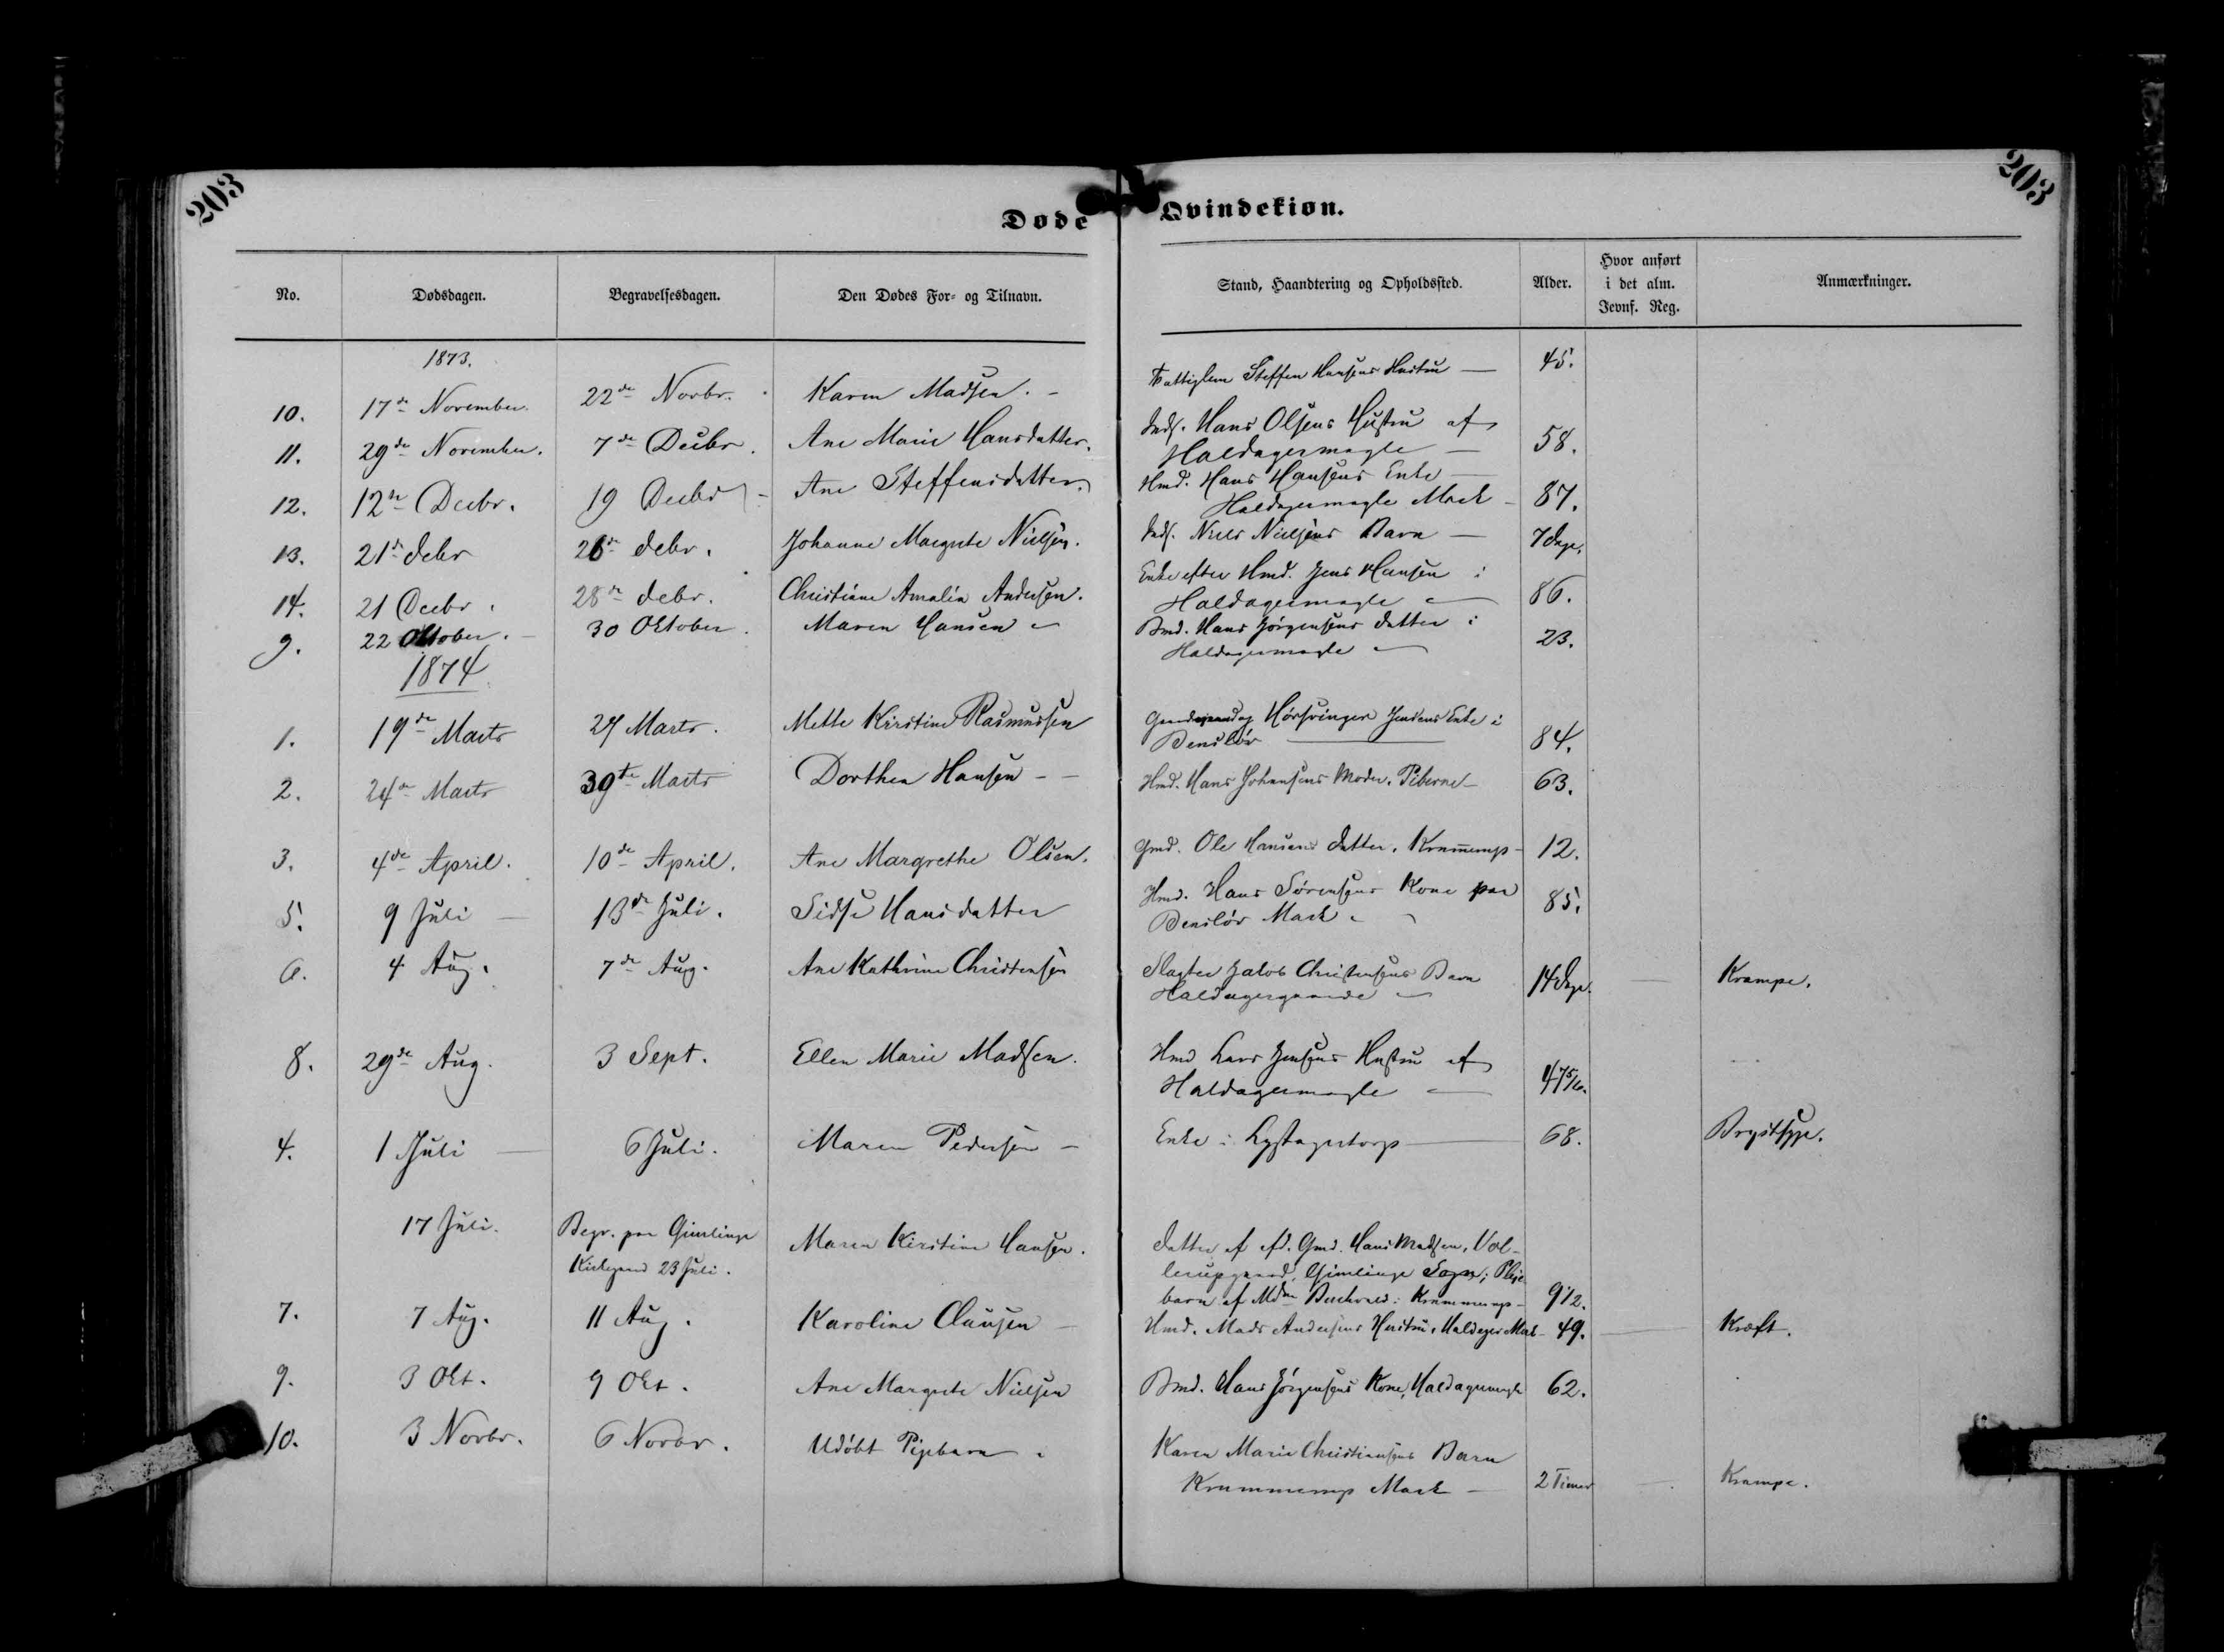 203
203
Døde Qvindekiøn.
No. Dødsdagen. Begravelsesdagen. Den Dødes For- og Tilnavn. Stand, Haandtering og Opholdssted. Alder. Hvor anført
i det alm.
Jevnf. Reg. Anmærkninger.
1873.
10. 17de November. 22de Novbr. Karen Madsen. Fattiglem Steffen Hansens Hustru 45.
11. 29de November. 7de Decbr. Ane Marie Hansdatter. Inds. Hans Olsens Hustru af
Haldagermagle 58.
12. 12te Decbr. 19 Decbr Ane Steffensdatter. Hmd. Hans Hansens Enke
Haldagermagle Mark 87.
13. 21de Decbr 26de Decbr. Johanne Margrete Nielsen. Inds. Niels Nielsens Barn 7 Dage.
14. 21 Decbr. 28de Decbr. Christiane Amalia Andersen. Enke efter Hmd. Jens Hansen i
Haldagermagle 86.
9. 22 Oktober. 30 Oktober. Maren Hansen Bmd. Hans Jørgensens Datter i
Haldagermagle 23.
1874
1. 19de Marts 27 Marts. Mette Kirstine Rasmussen Jensens Enke i
Bensløv 84.
2. 24de Marts 30te Marts Dorthea Hansen Hmd. Hans Johansens Moder. 63.
3. 4de April. 10de April. Ane Margrethe Olsen. Gmd. Ole Hansens Datter. Krummerup 12.
5. 9 Juli 13de Juli. Sidse Hansdatter Hmd. Hans Sørensens Kone paa
Bensløv Mark 85.
6. 4 Aug. 7de Aug. Ane Kathrine Christensen Slagter Jakob Christensens Barn
Haldagergaarde 14 Dage. Krampe.
8. 29de Aug. 3 Sept. Ellen Marie Madsen. Hmd Lars Jensens Hustru af
Haldagermagle 47 5/6.
4. 1 Juli 6 Juli. Maren Pedersen Enke i Lystagertorp 68. Brystsyge.
17 Juli. Begr. paa Gimlinge
Kirkegaard 23 Juli. Maren Kirstine Hansen. Datter af afd. Gmd. Hans Madsen, Vol-
lerupgaard, Gimlinge Sogn; Pleje
barn af Mdm Krummerup 9 1/2.
7. 7 Aug. 11 Aug. Karoline Clausen Hmd. Mads Andersens Hustru, Haldager Mark 49. Kræft.
9. 3 Okt. 9 Okt. Ane Margrete Nielsen Bmd. Hans Jørgensens Kone, Haldagermagle 62.
10. 3 Novbr. 6 Novbr. Udøbt Pigebarn Karen Marie Christiansens Barn
Krummerup Mark 2 Timer Krampe.